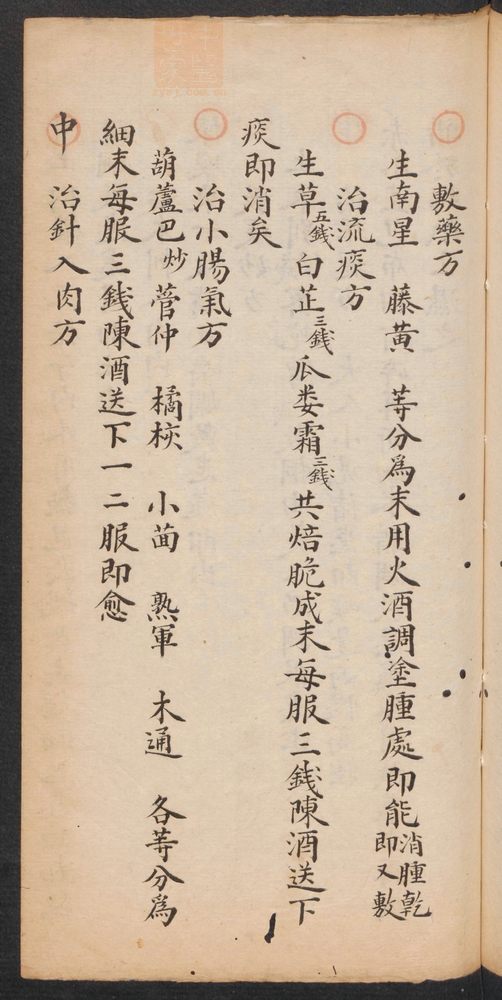 敷藥方
生南星　藤黃　等分爲末用火酒調塗腫處即能消腫乾即又敷
治流痰方
生草五錢白芷三錢瓜娄霜三錢共焙脆成末每服三錢陳酒送下
痰即消矣
治小腸氣方
葫蘆巴炒菅仲　橘核　小茴　熟軍　木通　各等分爲
細末每服三錢陳酒送下一二服即愈
中　治針入肉方